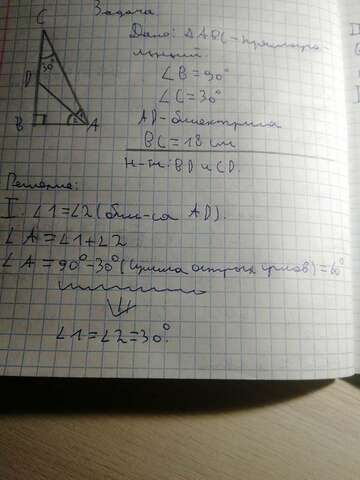 Задача.
C
30°
D
B
A
Дано: ΔABC - прямоуго-
льный.
∠B = 90°
∠C = 30°
AD - биссектриса
BC = 18 см
Н-ти: BD и CD.
Решение:
I. ∠1=∠2 (бис-са AD).
∠A = ∠1+∠2
∠A = 90°-30° (сумма острых углов) = 60°
⇓
∠1=∠2=30°.